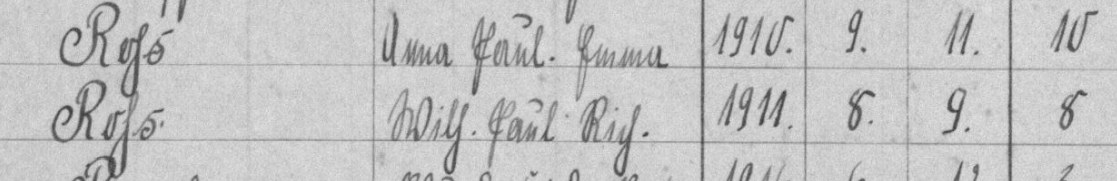 Roß Anna Paul. Emma 1910. 9. 11. 10
Roß. Wilh. Paul Rich. 1911. 8. 9. 8